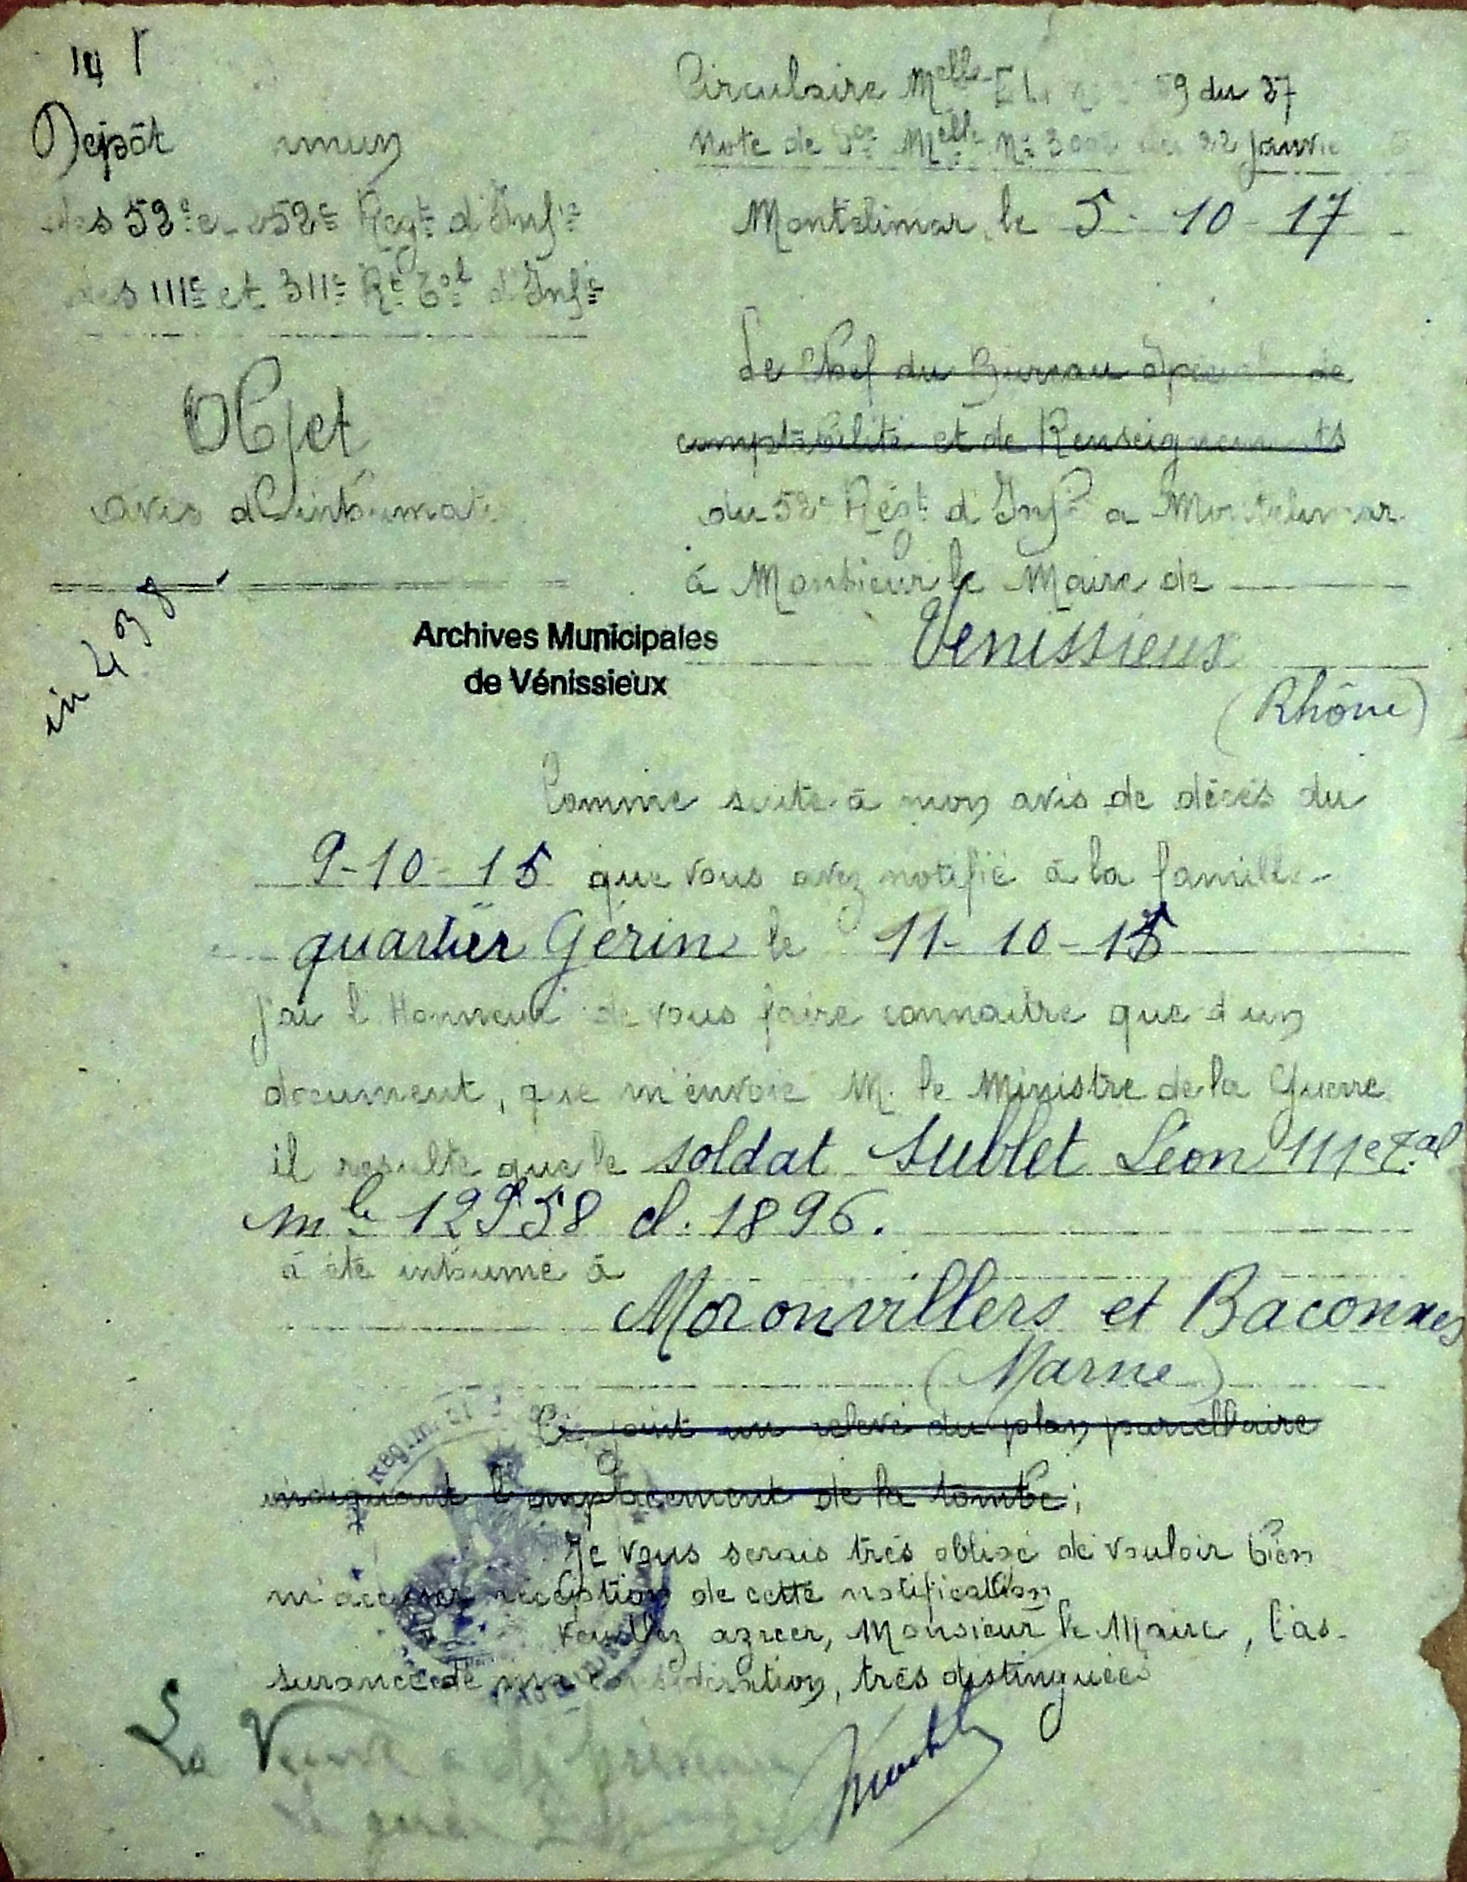 Dépôt
des 52e et 252e Regt d'Infie
des 111e et 311e Rt Tal d'Infie
Objet
avis d'inhumati
in 438
Circulaire Melle 59 du 27
Note de Sce Melle No 3 du 22 janvie
Montelimar, le 5-10-17
Le Chef du Bureau Spécial de
comptabilité et de Renseignements
du 52e Régt d'Infie a Montelimar
à Monsieur le Maire de
Vénissieux
(Rhône)
Archives Municipales
de Vénissieux
Comme suite à mon avis de décès du
9-10-15 que vous avez notifié à la famille
quartier Gérin le 11-10-15
j'ai l'Honneur de vous faire connaitre que d'un
document, que m'envoie M. le Ministre de la Guerre
il résulte que le soldat Sublet Léon 111e Tal
mle 12958 cl. 1896.
a été inhumé à
Moronvillers et Baconnes
(Marne)
Ci joint un relevé du plan parcellaire
indiquant l'emplacement de la tombe;
Je vous serais très obligé de vouloir bien
m'accuser réception de cette notification
Veuillez agréer, Monsieur le Maire, l'as-
surance de ma considération, très distinguée
La Veuve a été prévenue
Le